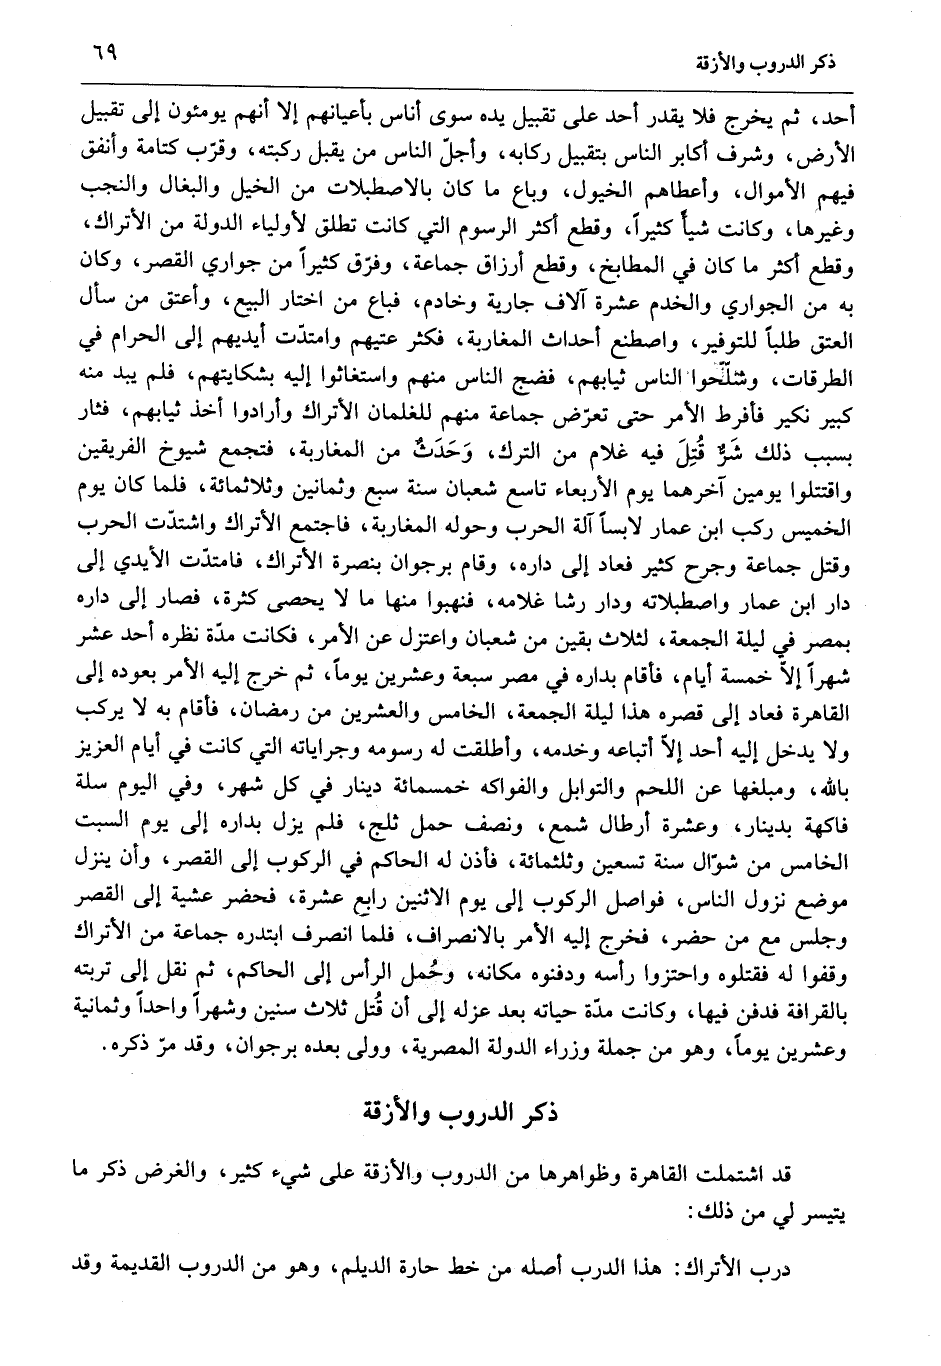 ذكر الدروب والأزقة ٦٩
أحد، ثم يخرج فلا يقدر أحد على تقبيل يده سوى أناس بأعيانهم إلا أنهم يومئون إلى تقبيل
الأرض، وشرف أكابر الناس بتقبيل ركابه، وأجلّ الناس من يقبل ركبته، وقرّب كتامة وأنفق
فيهم الأموال، وأعطاهم الخيول، وباع ما كان بالاصطبلات من الخيل والبغال والنجب
وغيرها، وكانت شيأً كثيراً، وقطع أكثر الرسوم التي كانت تطلق لأولياء الدولة من الأتراك،
وقطع أكثر ما كان في المطابخ، وقطع أرزاق جماعة، وفرّق كثيراً من جواري القصر، وكان
به من الجواري والخدم عشرة آلاف جارية وخادم، فباع من اختار البيع، وأعتق من سأل
العتق طلباً للتوفير، واصطنع أحداث المغاربة، فكثر عتيهم وامتدّت أيديهم إلى الحرام في
الطرقات، وشلّحوا الناس ثيابهم، فضج الناس منهم واستغاثوا إليه بشكايتهم، فلم يبد منه
كبير نكير فأفرط الأمر حتى تعرّض جماعة منهم للغلمان الأتراك وأرادوا أخذ ثيابهم، فثار
بسبب ذلك شَرٌّ قُتِلَ فيه غلام من الترك، وَحَدَثٌ من المغاربة، فتجمع شيوخ الفريقين
واقتتلوا يومين آخرهما يوم الأربعاء تاسع شعبان سنة سبع وثمانين وثلاثمائة، فلما كان يوم
الخميس ركب ابن عمار لابساً آلة الحرب وحوله المغاربة، فاجتمع الأتراك واشتدّت الحرب
وقتل جماعة وجرح كثير فعاد إلى داره، وقام برجوان بنصرة الأتراك، فامتدّت الأيدي إلى
دار ابن عمار واصطبلاته ودار رشا غلامه، فنهبوا منها ما لا يحصى كثرة، فصار إلى داره
بمصر في ليلة الجمعة، لثلاث بقين من شعبان واعتزل عن الأمر، فكانت مدّة نظره أحد عشر
شهراً إلاّ خمسة أيام، فأقام بداره في مصر سبعة وعشرين يوماً، ثم خرج إليه الأمر بعوده إلى
القاهرة فعاد إلى قصره هذا ليلة الجمعة، الخامس والعشرين من رمضان، فأقام به لا يركب
ولا يدخل إليه أحد إلاّ أتباعه وخدمه، وأطلقت له رسومه وجراياته التي كانت في أيام العزيز
بالله، ومبلغها عن اللحم والتوابل والفواكه خمسمائة دينار في كل شهر، وفي اليوم سلة
فاكهة بدينار، وعشرة أرطال شمع، ونصف حمل ثلج، فلم يزل بداره إلى يوم السبت
الخامس من شوّال سنة تسعين وثلثمائة، فأذن له الحاكم في الركوب إلى القصر، وأن ينزل
موضع نزول الناس، فواصل الركوب إلى يوم الاثنين رابع عشرة، فحضر عشية إلى القصر
وجلس مع من حضر، فخرج إليه الأمر بالانصراف، فلما انصرف ابتدره جماعة من الأتراك
وقفوا له فقتلوه واحتزوا رأسه ودفنوه مكانه، وحُمل الرأس إلى الحاكم، ثم نقل إلى تربته
بالقرافة فدفن فيها، وكانت مدّة حياته بعد عزله إلى أن قُتل ثلاث سنين وشهراً واحداً وثمانية
وعشرين يوماً، وهو من جملة وزراء الدولة المصرية، وولى بعده برجوان، وقد مرّ ذكره.
ذكر الدروب والأزقة
قد اشتملت القاهرة وظواهرها من الدروب والأزقة على شيء كثير، والغرض ذكر ما
يتيسر لي من ذلك:
درب الأتراك: هذا الدرب أصله من خط حارة الديلم، وهو من الدروب القديمة وقد